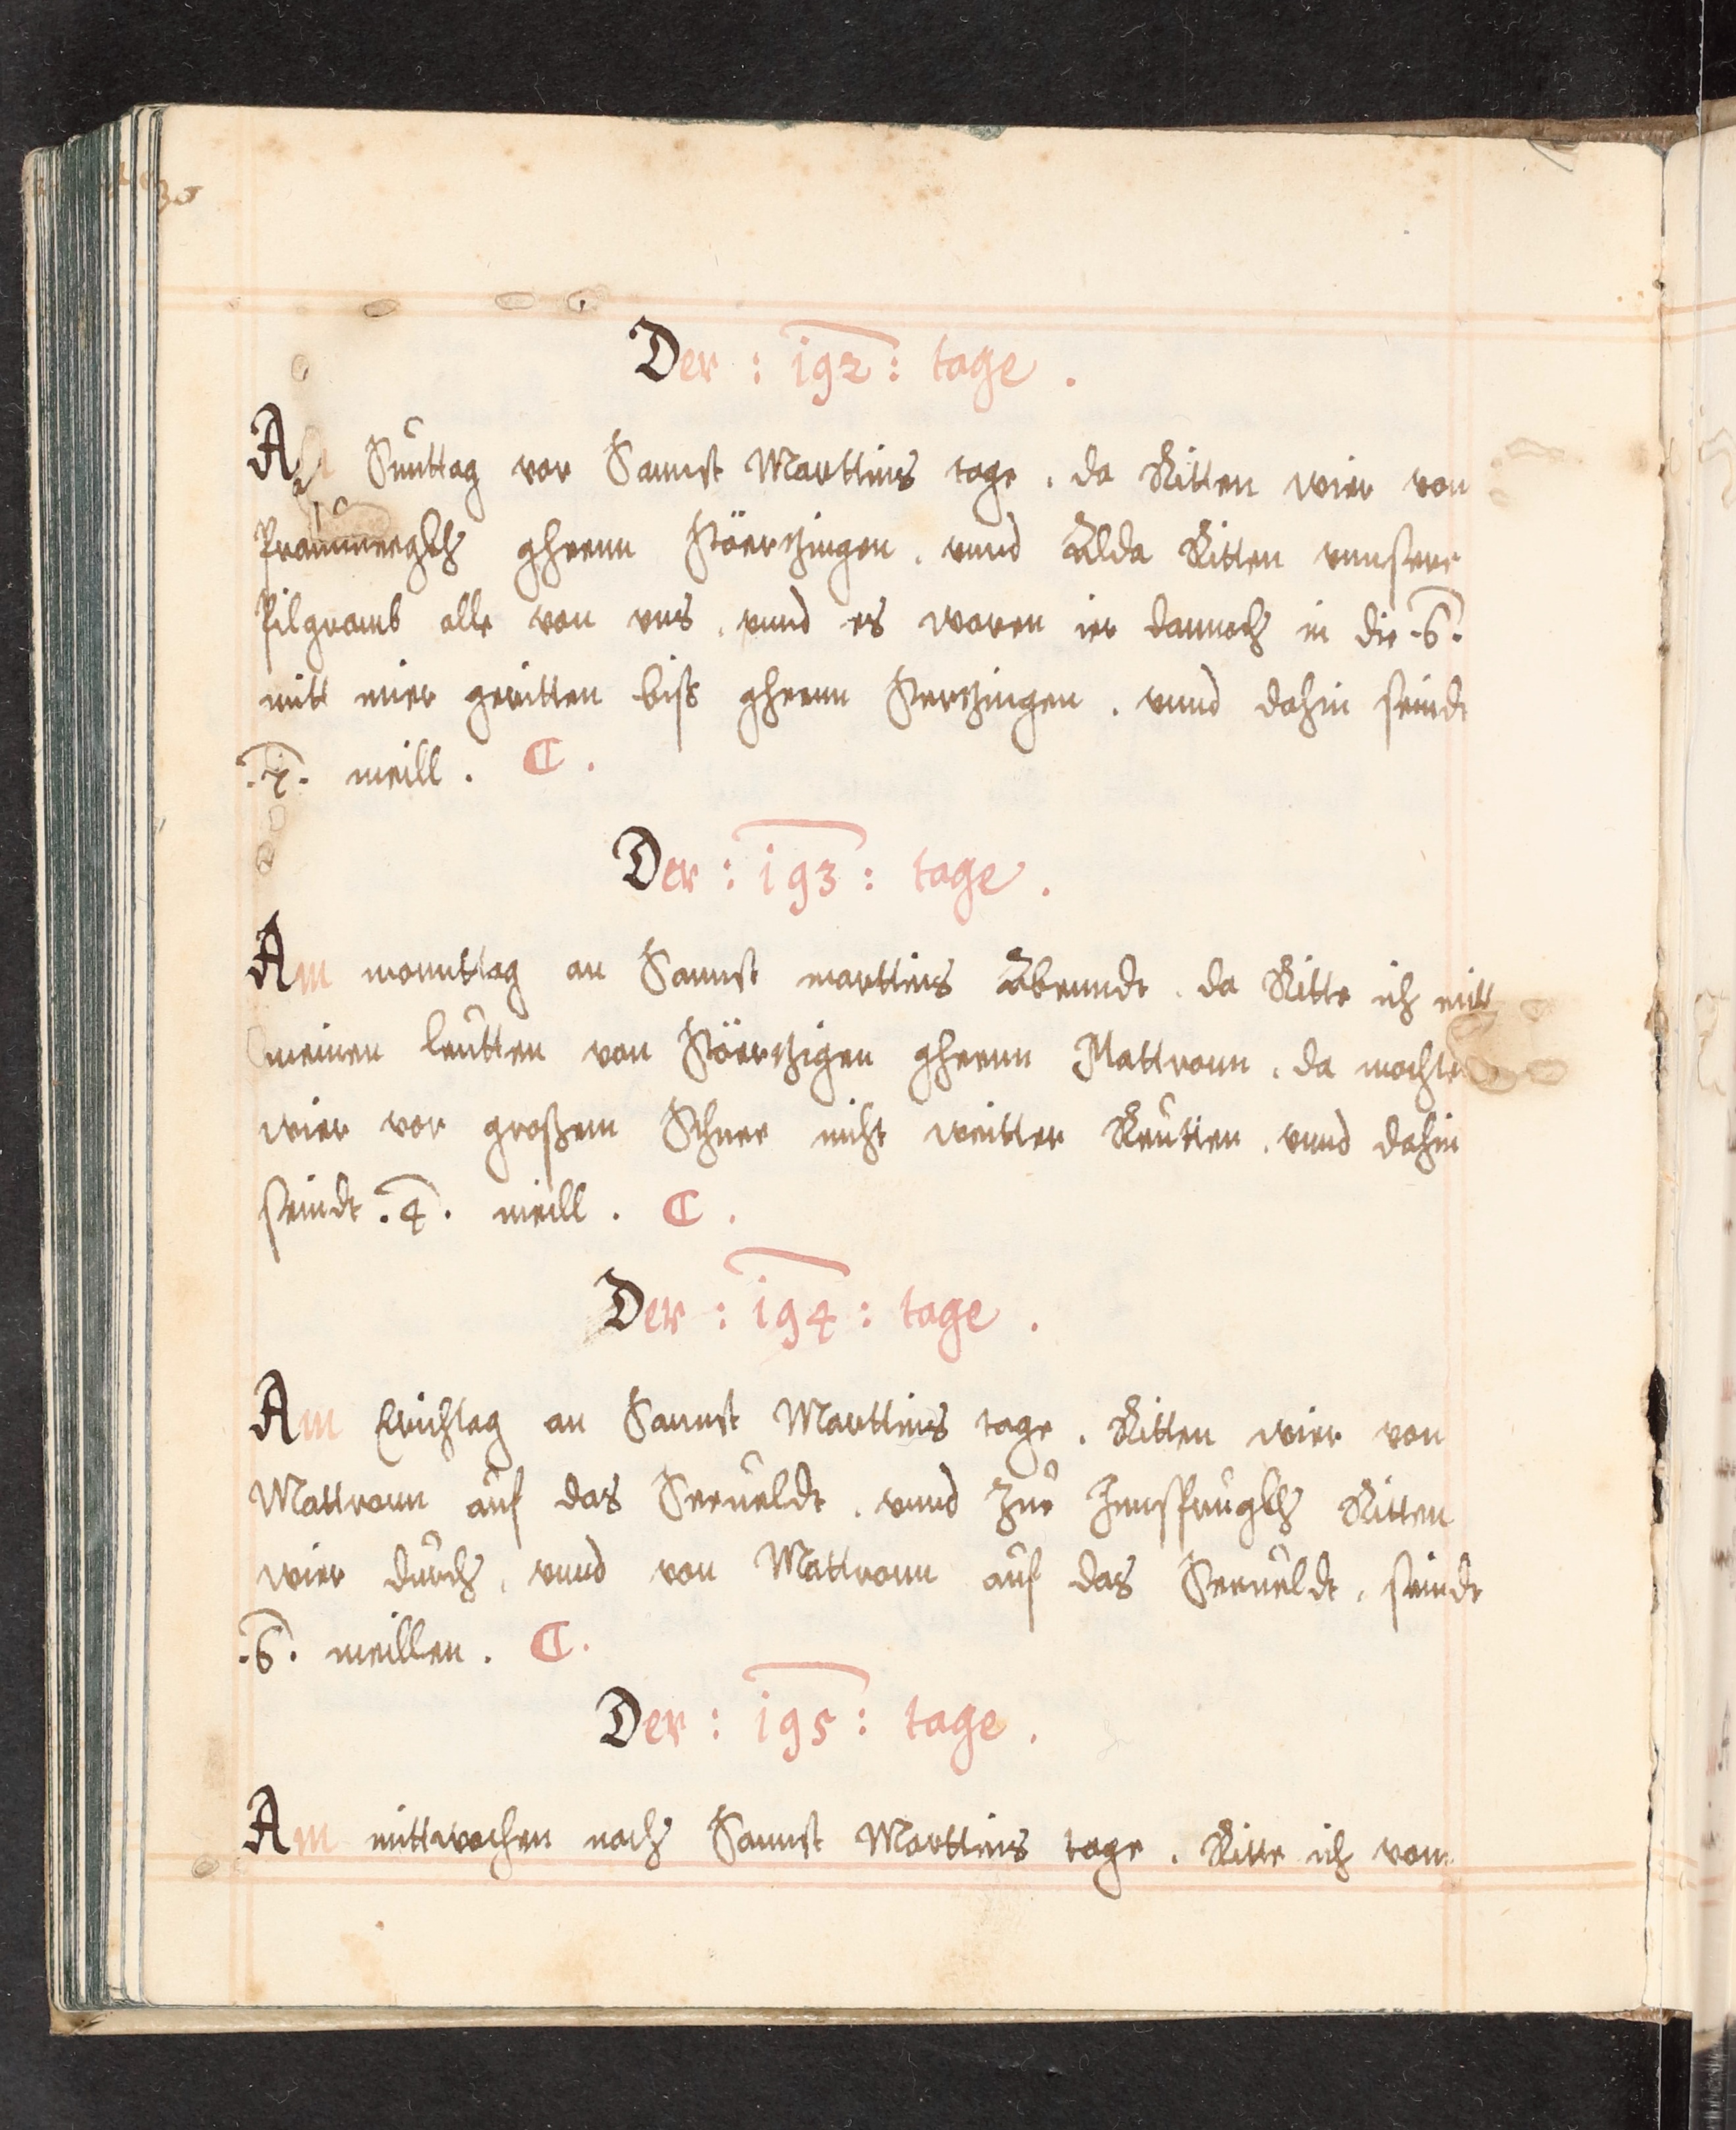 Der : 192 : tage .
Am Sunttag vor Sannct Marttins tage . da Ritten wier von
Praunneghh gheenn Stöerzingen . vnnd Alda Ritten vnnsere
Pilgramb alle von vns . vnnd es waren ir dannoch in die .6.
mitt mier geritten biss gheenn Sterzingen . vnnd dahin seindt
.7. meill . C .
Der : 193 : tage .
Am monnttag an Sannct marttins Abenndt . da Ritte ich mitt
meinen leutten von Störzigen gheenn Mattronn . da mochte
wier vor großem Schnee nicht weitter Reutten . vnnd dahin
seindt .4. meill . C .
Der : 194 : tage .
Am Erichtag an Sannct Marttins tage . Ritten wier von
Mattronn auf das Seeueldt . vnnd zue Innsprughh Ritten
wier durch . vnnd von Mattronn auf das Seeueldt . seindt
.6. meillen . C .
Der : 195 : tage .
Am mittwochen nach Sannct Marttins tage . Ritte ich vom